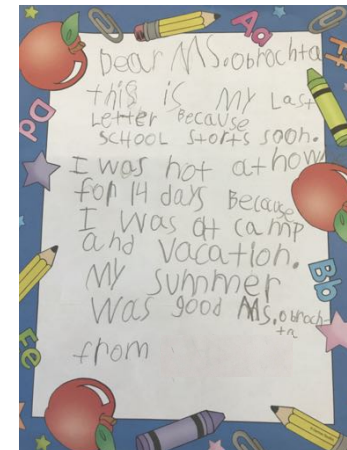 Dear MS. obrochta
this is My Last
Letter Because
SCHOOL Storts soon.
I was not at how
for 14 days Because
I was at camp
and vacation.
My summer
was good Ms. obroch-
ta
from
Aa
Ff
Dd
Bb
Ee